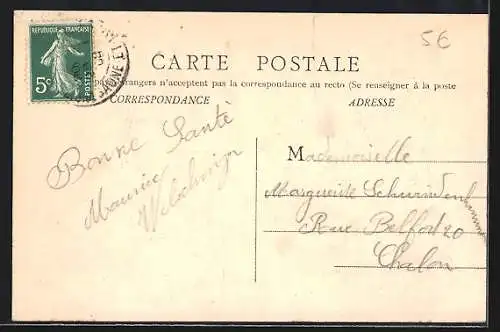 RÉPUBLIQUE FRANÇAISE
5c
POSTES
5€
CARTE POSTALE
étrangers n'acceptent pas la correspondance au recto (Se renseigner à la poste
CORRESPONDANCE
ADRESSE
Bonne Santé
Maurice
Mademoiselle
Marguerite
Rue Belfort 20
Chalon